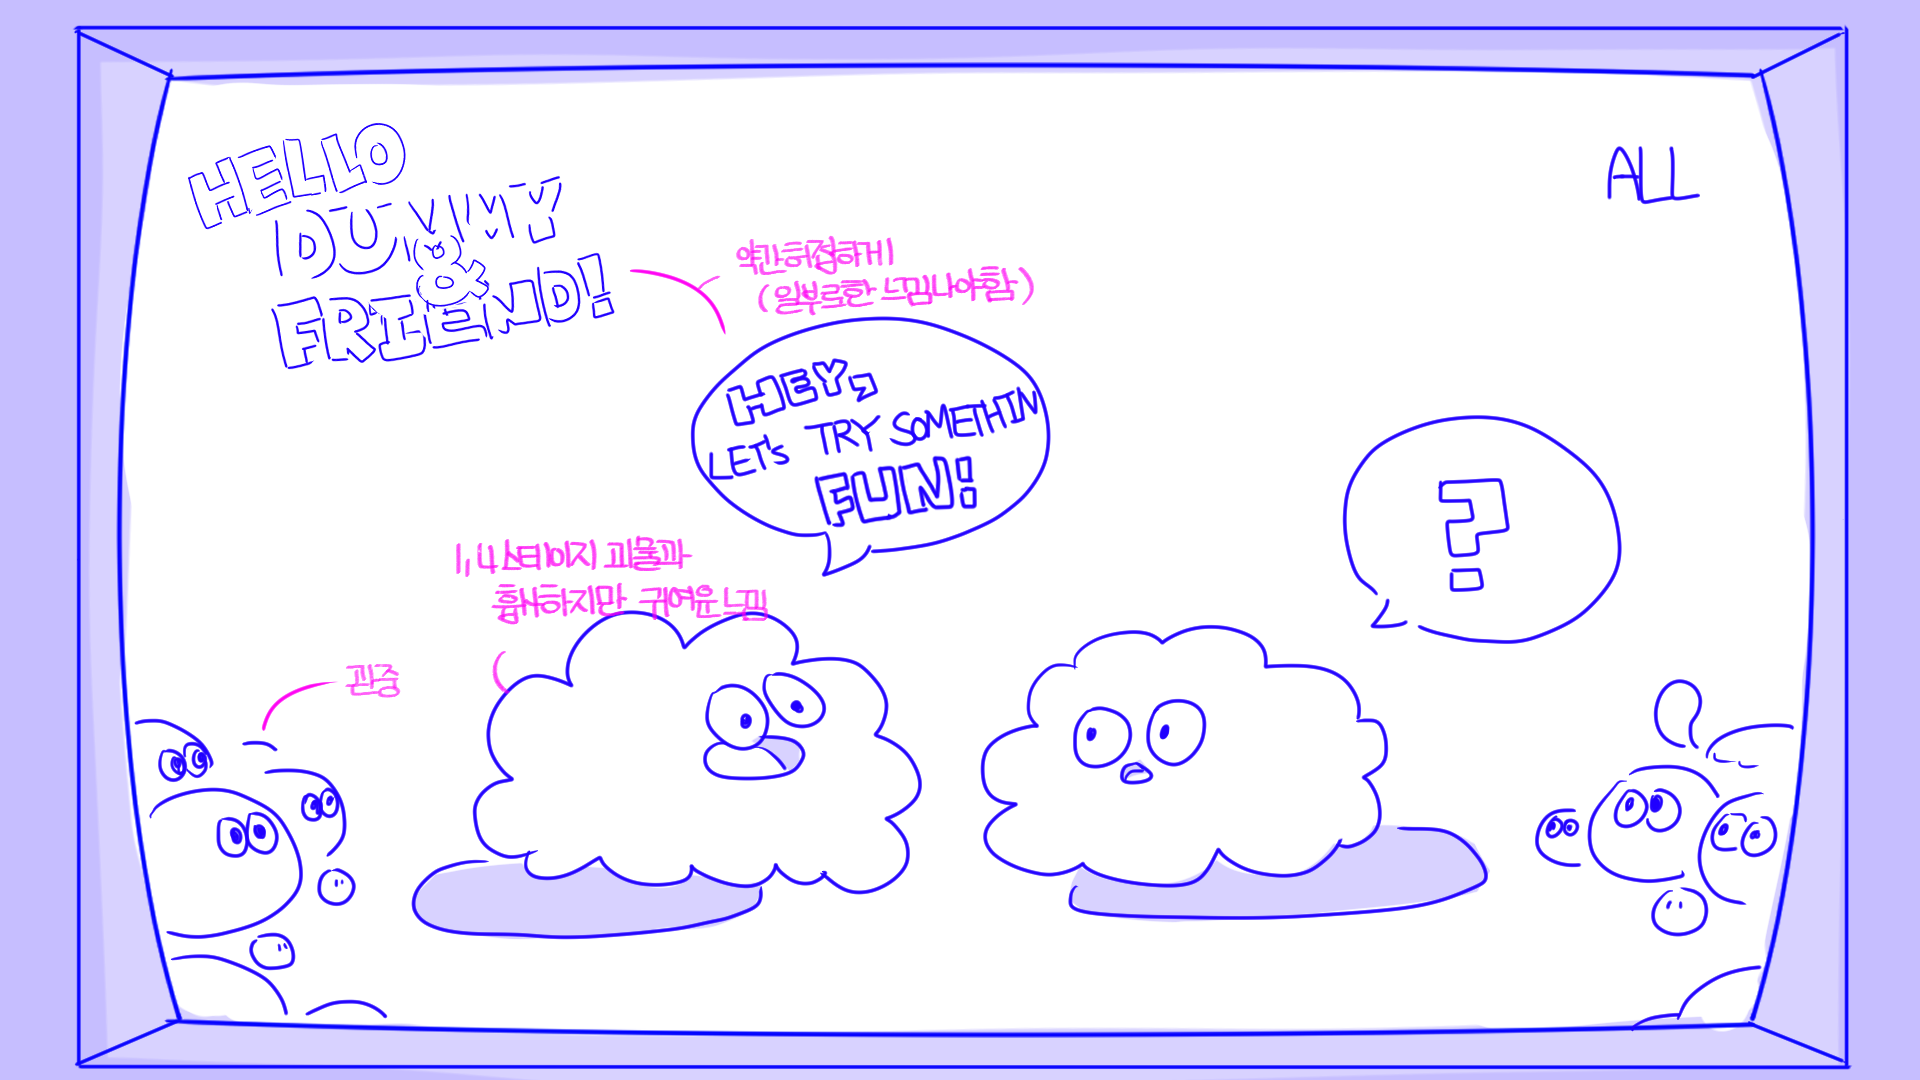 HELLO
DUMMY
&
FRIEND!
ALL
약간허접하게
(일부로한 느낌나야함)
HEY,
LET'S TRY SOMETHIN
FUN!
?
1,4스테이지 괴물과
흡사하지만 귀여운느낌
관중